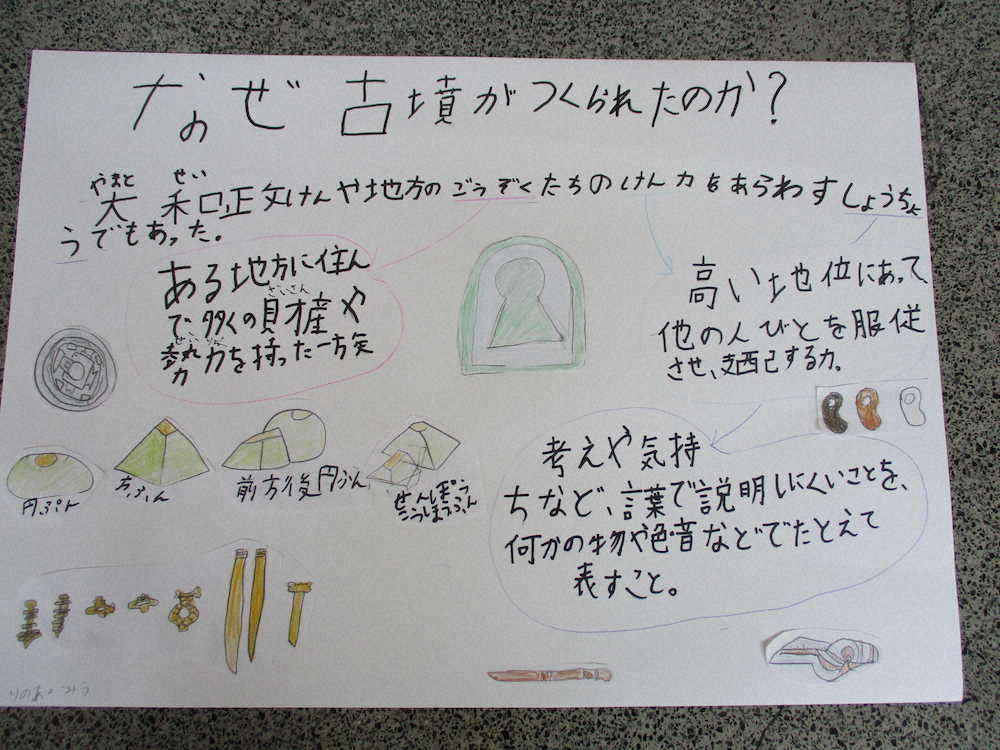 なぜ古墳がつくられたのか?
やまと せい
大和正文けんや地方のごうぞくたちのけん力をあらわすしょうちょ
うでもあった。
ある地方に住ん
ざいさん
で、多くの財産や
せいりょく
勢力を持った一方矢
高い地位にあって、
他の人びとを服従
させ、支配する力。
考えや気持
ちなど、言葉で説明しにくいことを、
何かの物や色音などでたとえて
表すこと。
円ぷん
方ふん
前方後円ふん
ぜんぽう
こうほうふん
りのあ。みう